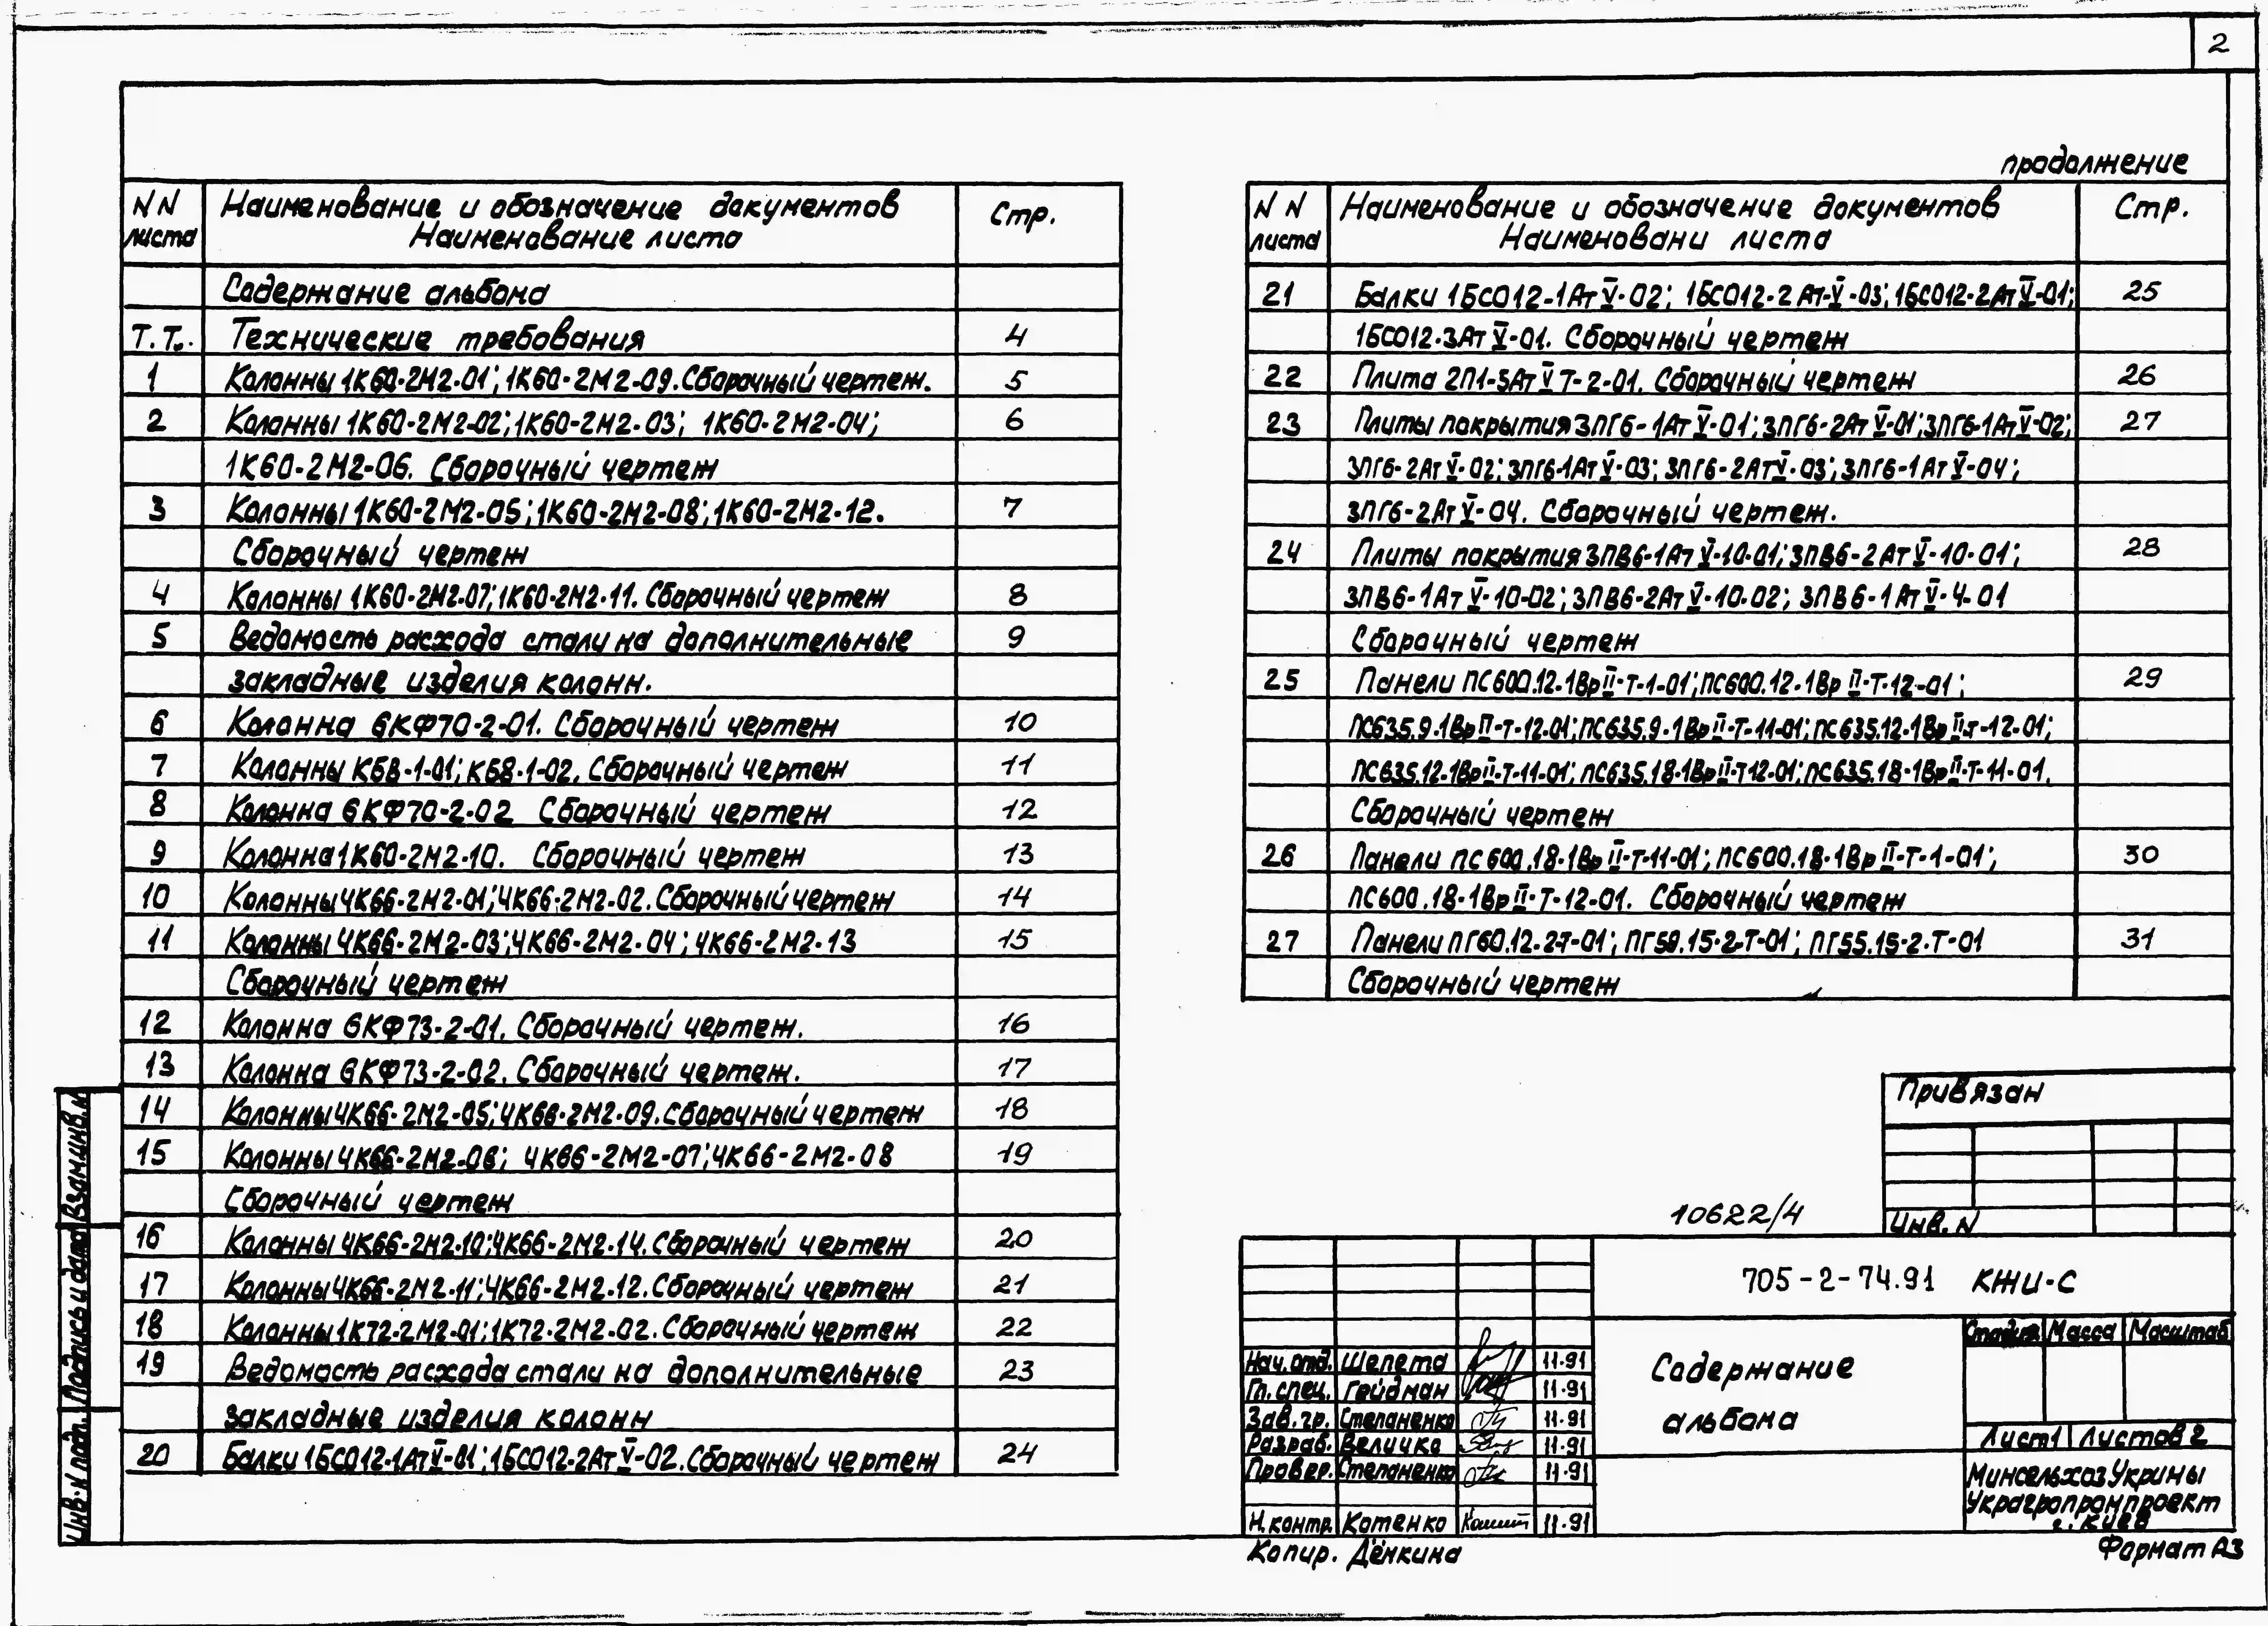 2
NN листа Наименование и обозначение документов Наименование листа Стр.
Содержание альбома
Т.Т. Технические требования 4
1 Колонны 1К60-2М2-01; 1К60-2М2-09. Сборочный чертеж. 5
2 Колонны 1К60-2М2-02; 1К60-2М2-03; 1К60-2М2-04; 6
1К60-2М2-06. Сборочный чертеж
3 Колонны 1К60-2М2-05; 1К60-2М2-08; 1К60-2М2-12. 7
Сборочный чертеж
4 Колонны 1К60-2М2-07; 1К60-2М2-11. Сборочный чертеж 8
5 Ведомость расхода стали на дополнительные 9
закладные изделия колонн.
6 Колонна 6КФ70-2-01. Сборочный чертеж 10
7 Колонны К68-1-01; К68-1-02. Сборочный чертеж 11
8 Колонна 6КФ70-2-02 Сборочный чертеж 12
9 Колонна 1К60-2М2-10. Сборочный чертеж 13
10 Колонны 4К66-2М2-01; 4К66-2М2-02. Сборочный чертеж 14
11 Колонны 4К66-2М2-03; 4К66-2М2-04; 4К66-2М2-13 15
Сборочный чертеж
12 Колонна 6КФ73-2-01. Сборочный чертеж. 16
13 Колонна 6КФ73-2-02. Сборочный чертеж. 17
14 Колонны 4К66-2М2-05; 4К66-2М2-09. Сборочный чертеж 18
15 Колонны 4К66-2М2-06; 4К66-2М2-07; 4К66-2М2-08 19
Сборочный чертеж
16 Колонны 4К66-2М2-10; 4К66-2М2-14. Сборочный чертеж 20
17 Колонны 4К66-2М2-11; 4К66-2М2-12. Сборочный чертеж 21
18 Колонны 1К72-2М2-01; 1К72-2М2-02. Сборочный чертеж 22
19 Ведомость расхода стали на дополнительные 23
закладные изделия колонн
20 Балки 1БСО12-1АтV-01; 1БСО12-2АтV-02. Сборочный чертеж 24
продолжение
NN листа Наименование и обозначение документов Наименовани листа Стр.
21 Балки 1БСО12-1АтV-02; 1БСО12-2Ат-V-03; 1БСО12-2АтV-01; 25
1БСО12-3АтV-01. Сборочный чертеж
22 Плита 2П1-3АтVТ-2-01. Сборочный чертеж 26
23 Плиты покрытия 3ПГ6-1АтV-01; 3ПГ6-2АтV-01; 3ПГ6-1АтV-02; 27
3ПГ6-2АтV-02; 3ПГ6-1АтV-03; 3ПГ6-2АтV-03; 3ПГ6-1АтV-04;
3ПГ6-2АтV-04. Сборочный чертеж.
24 Плиты покрытия 3ПВ6-1АтV-10-01; 3ПВ6-2АтV-10-01; 28
3ПВ6-1АтV-10-02; 3ПВ6-2АтV-10-02; 3ПВ6-1АтV-4-01
Сборочный чертеж
25 Панели ПС600.12-1ВрII-Т-1-01; ПС600.12-1ВрII-Т-12-01; 29
ПС635.9-1ВрII-Т-12-01; ПС635.9-1ВрII-Т-11-01; ПС635.12-1ВрII-т-12-01;
ПС635.12-1ВрII-Т-11-01; ПС635.18-1ВрII-Т12-01; ПС635.18-1ВрII-Т-11-01.
Сборочный чертеж
26 Панели ПС600.18-1ВрII-Т-11-01; ПС600.18-1ВрII-Т-1-01; 30
ПС600.18-1ВрII-Т-12-01. Сборочный чертеж
27 Панели ПГ60.12-2-Т-01; ПГ59.15-2-Т-01; ПГ55.15-2-Т-01 31
Сборочный чертеж
Привязан
Инв. N
10622/4
705-2-74.91 КЖИ-С
Стадия Масса Масштаб
Содержание
альбома
Лист 1 Листов 2
Минсельхоз Укрины
Украгропромпроект
г. Киев
Нач. отд. Шепета 11.91
Гл. спец. Гейдман 11.91
Зав. гр. Степаненко 11.91
Разраб. Величко 11.91
Провер. Степаненко 11.91
Н. контр. Котенко 11.91
Копир. Дёнкина
Формат А3
Инв. N подп. Подпись и дата Взам инв. N